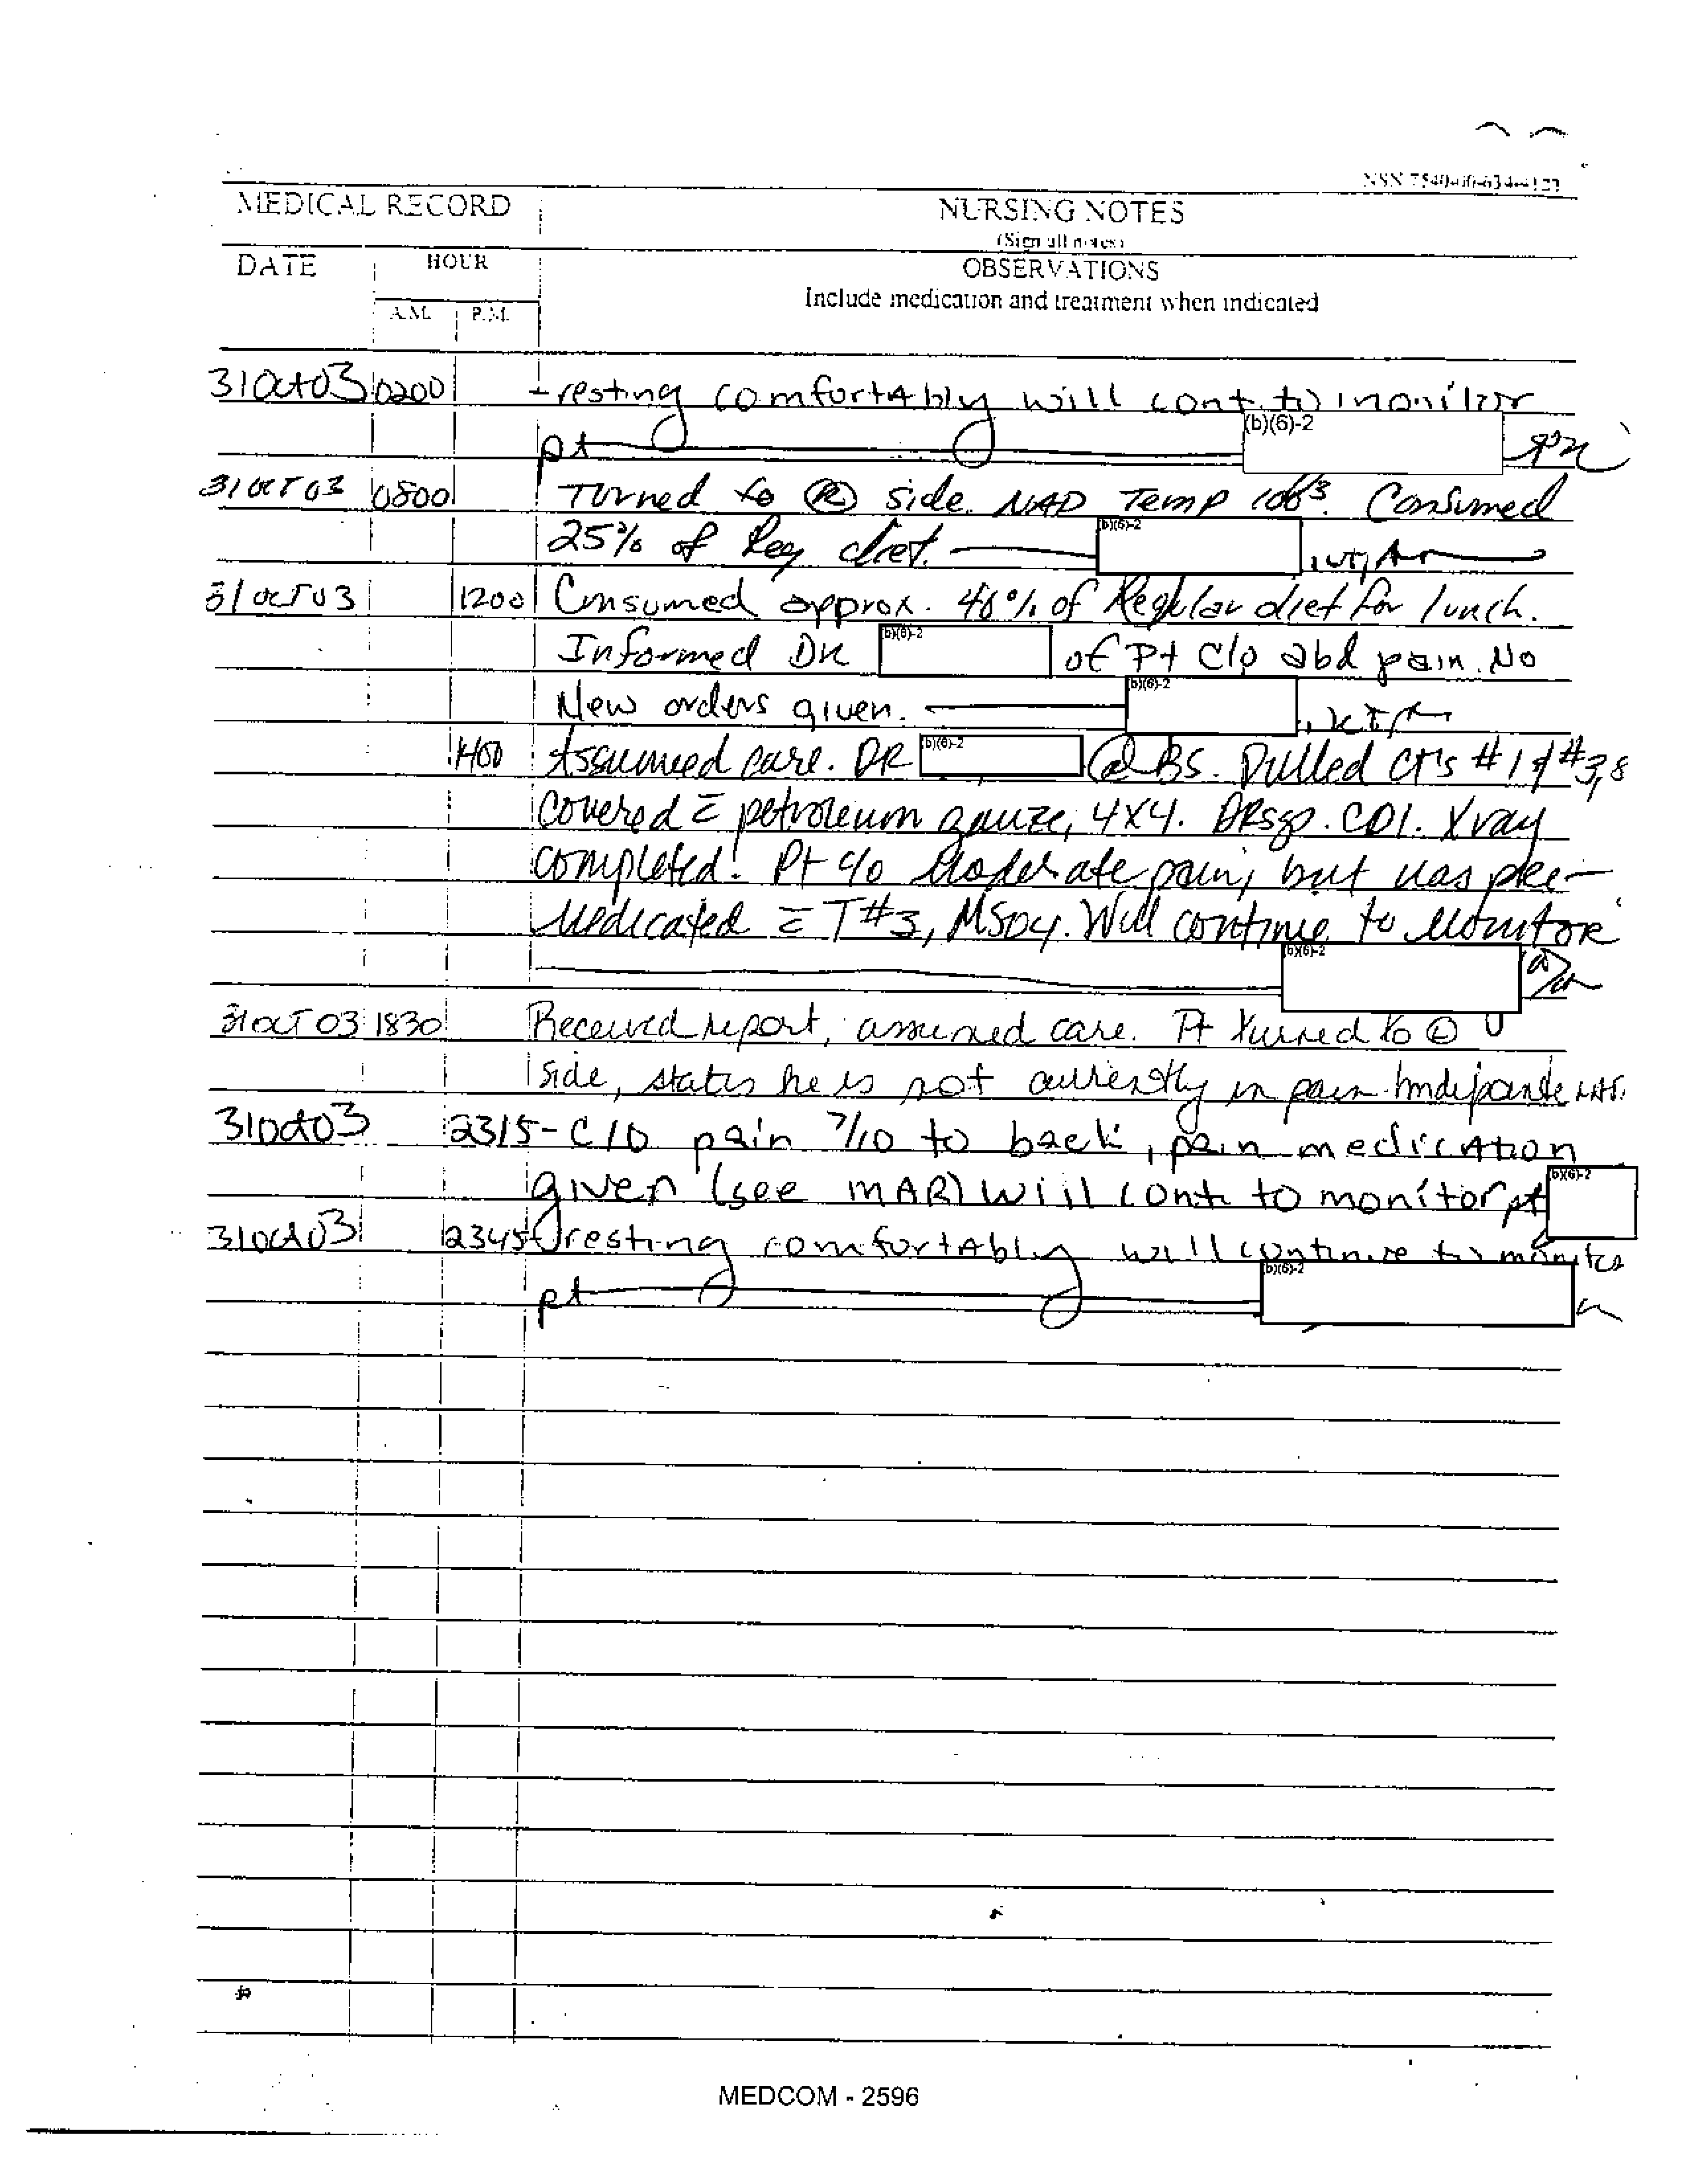 NSN 7540-00-634-4122
MEDICAL RECORD NURSING NOTES
(Sign all notes)
DATE HOUR OBSERVATIONS
Include medication and treatment when indicated
A.M. P.M.
31Oct03 0200 - resting comfortably will cont. to monitor
pt (b)(6)-2
31 OCT 03 0800 Turned to (R) side. NAD Temp 100³. Consumed
25% of Reg diet. (b)(6)-2
31 OCT 03 1200 Consumed approx. 40% of Regular diet for lunch.
Informed DR (b)(6)-2 of Pt C/o abd pain. No
New orders given. (b)(6)-2
1400 Assumed care. DR (b)(6)-2 @ BS. Pulled CT's #1 & #3,
covered c̄ petroleum gauze, 4X4. DRsg. CDI. Xray
completed. Pt c/o Moderate pain, but was pre-
Medicated c̄ T#3, MSO4. Will continue to Monitor
(b)(6)-2
31 OCT 03 1830 Received report, assumed care. Pt turned to (L)
side, states he is not currently in pain.
31Oct03 2315 - C/O pain 7/10 to back, pain medication
given (see MAR) will cont to monitor pt (b)(6)-2
31Oct03 2345 resting comfortably will continue to monitor
pt (b)(6)-2
MEDCOM - 2596